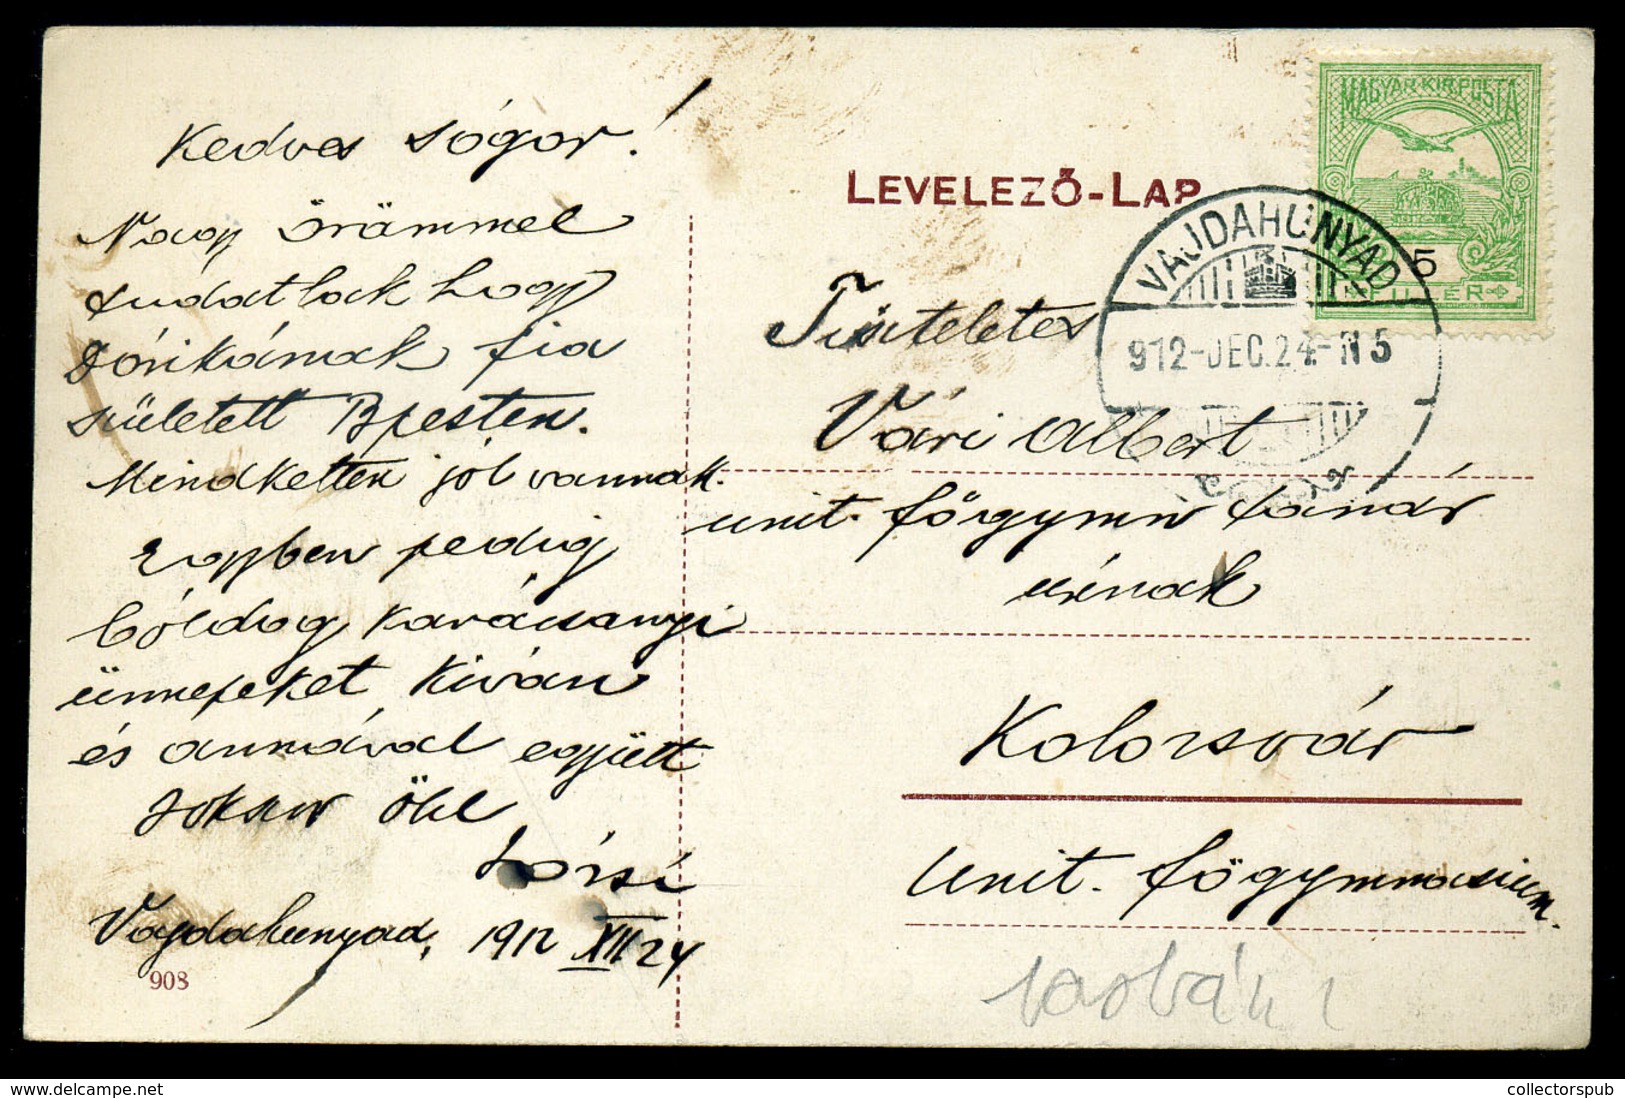 Kedves sógor!
Nagy örömmel
tudatlak hogy
Dórikámak fia
született Bpesten.
Mindketten jól vannak.
Egyben pedig
bóldog karácsonyi
ünnepeket kiván
és annával együtt
sokszor ölel
Vajdahunyad, 1912 XII 24
908
LEVELEZŐ-LAP
MAGYAR KIR. POSTA
5
FILLÉR
VAJDAHUNYAD
912-DEC.24-N5
Tisteletes
Vári Albert
unit. főgymn tanár
úrnak
Kolozsvár
unit. főgymnasium.
delcampe.net
collectorspub